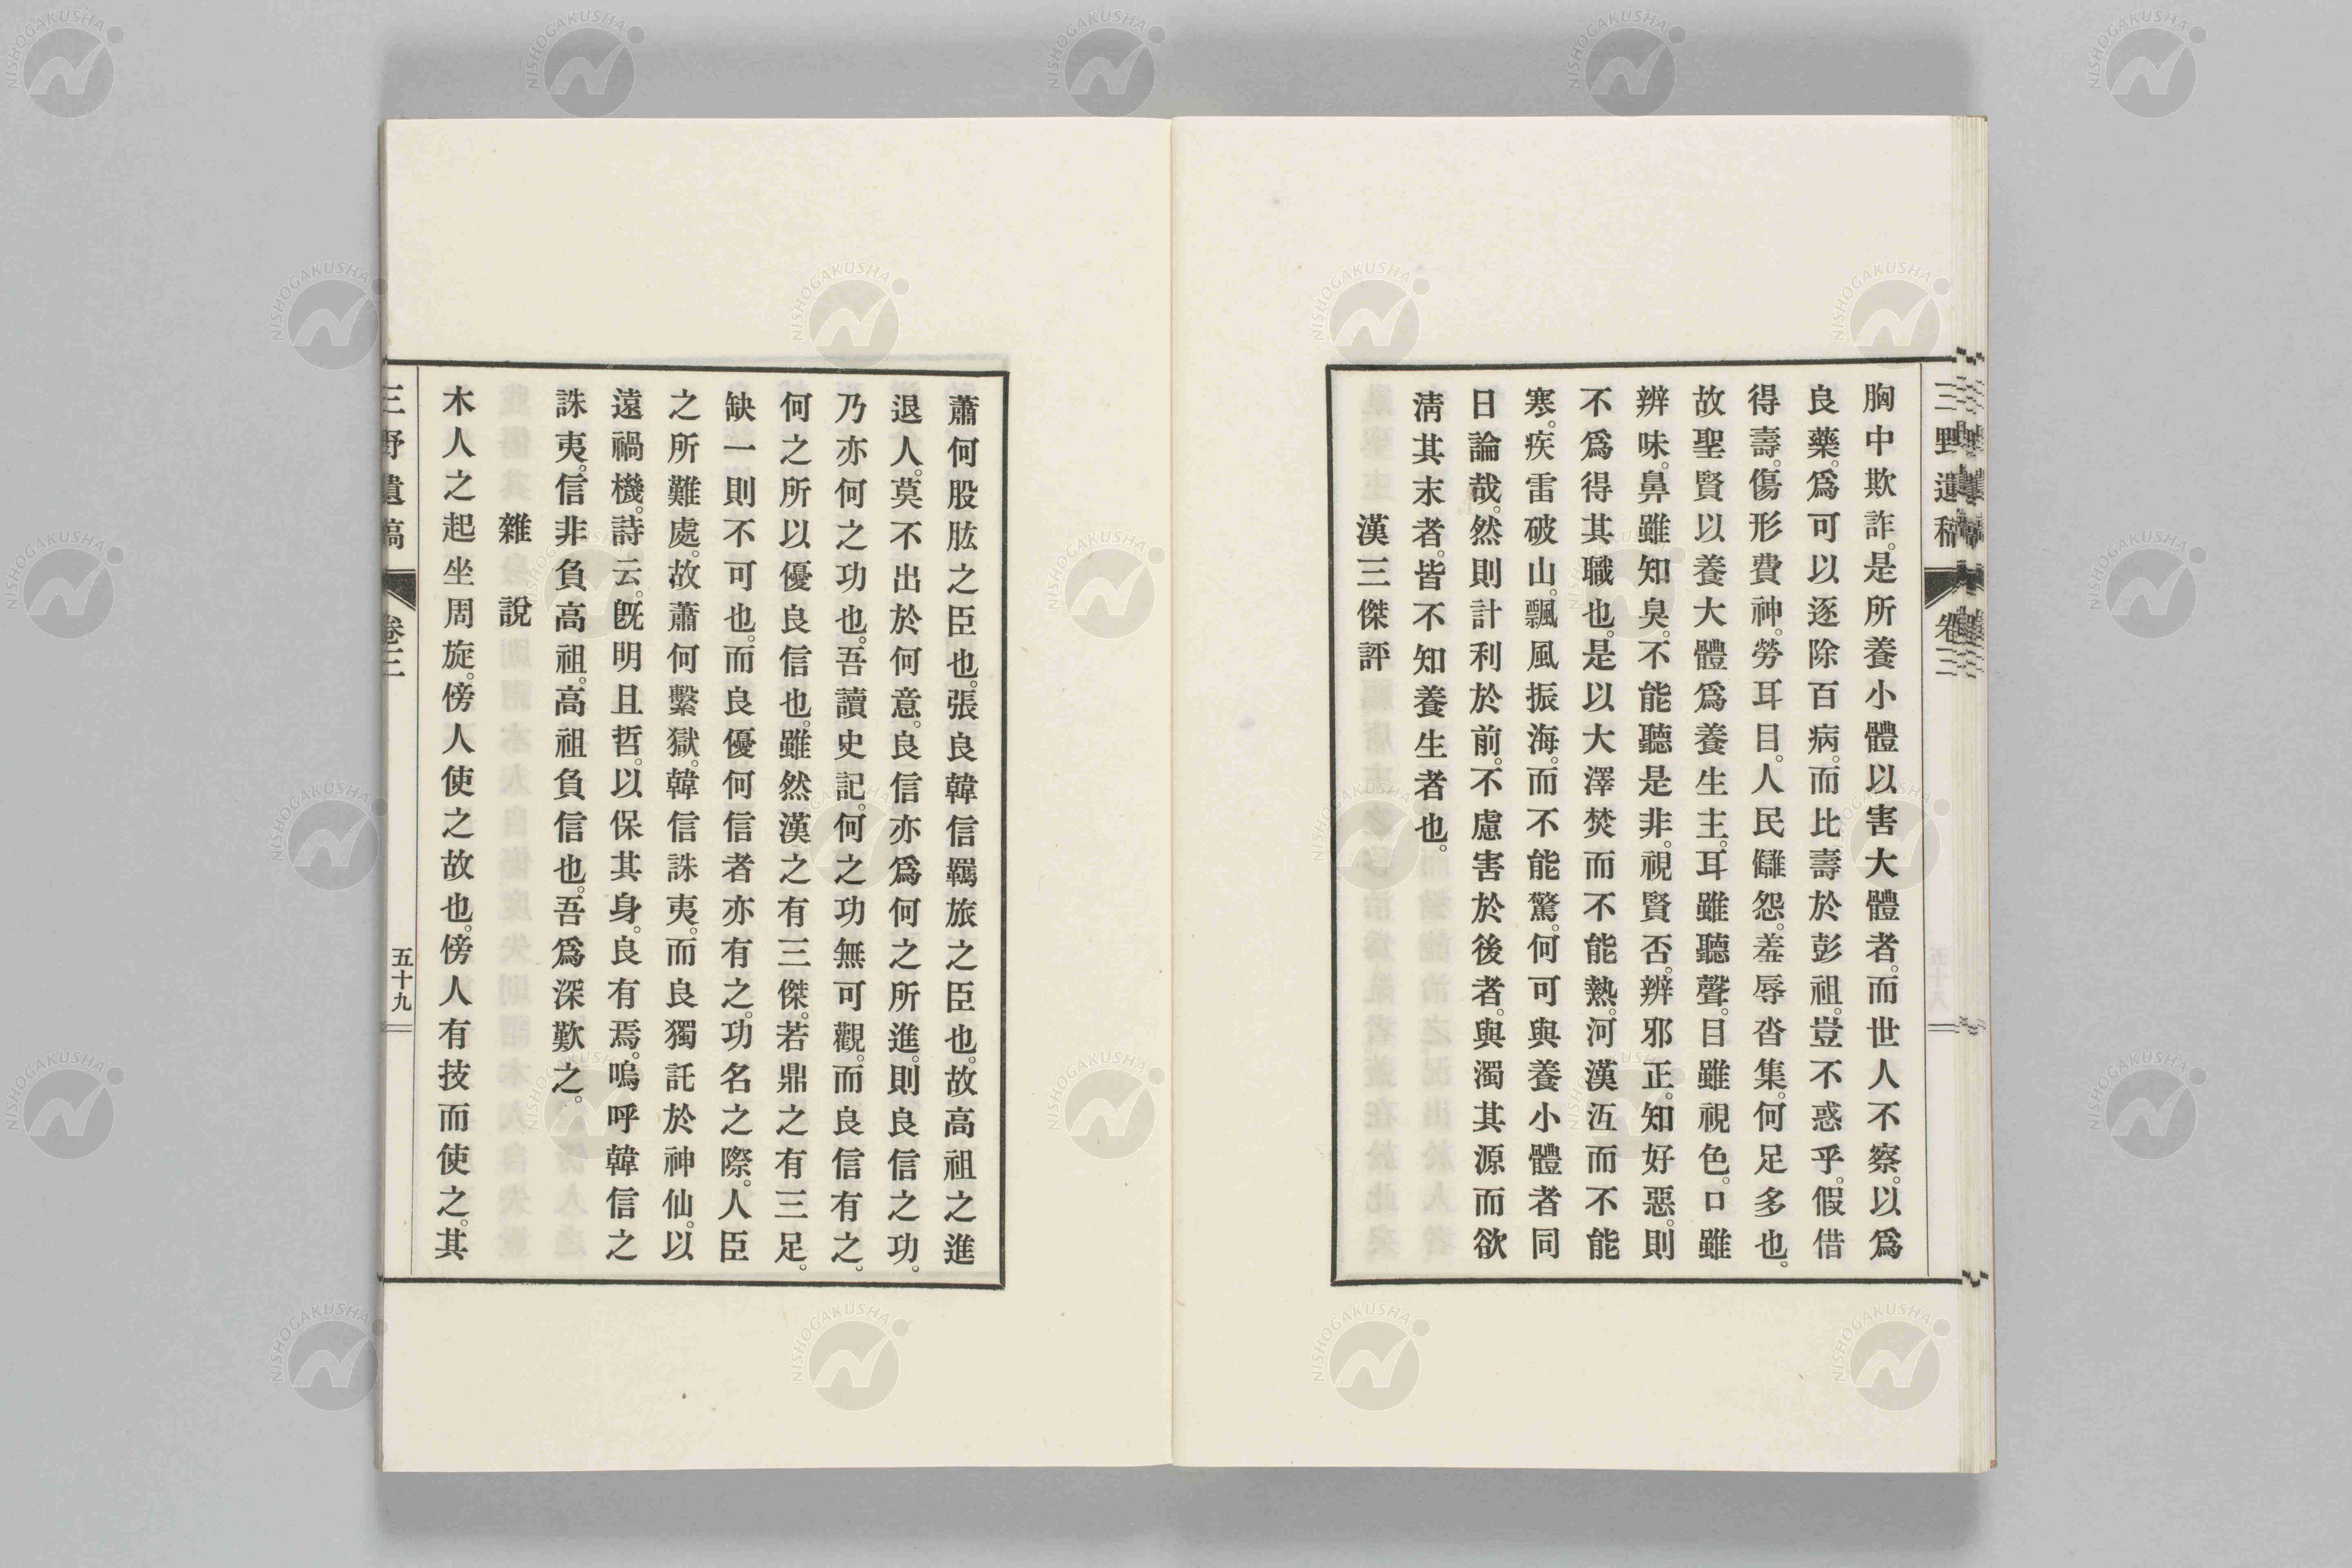 三野遺稿 卷三
胸中欺詐。是所養小體以害大體者。而世人不察。以爲
良藥。爲可以逐除百病。而比壽於彭祖。豈不惑乎。假借
得壽。傷形費神。勞耳目。人民讎怨。羞辱沓集。何足多也。
故聖賢以養大體爲養生主。耳雖聽聲。目雖視色。口雖
辨味。鼻雖知臭。不能聽是非。視賢否。辨邪正。知好惡。則
不爲得其職也。是以大澤焚而不能熱。河漢沍而不能
寒。疾雷破山。飄風振海。而不能驚。何可與養小體者同
日論哉。然則計利於前。不慮害於後者。與濁其源而欲
淸其末者。皆不知養生者也。
漢三傑評
蕭何股肱之臣也。張良韓信羈旅之臣也。故高祖之進
退人。莫不出於何意。良信亦爲何之所進。則良信之功。
乃亦何之功也。吾讀史記。何之功無可觀。而良信有之。
何之所以優良信也。雖然漢之有三傑。若鼎之有三足。
缺一則不可也。而良優何信者亦有之。功名之際。人臣
之所難處。故蕭何繫獄。韓信誅夷。而良獨託於神仙。以
遠禍機。詩云。旣明且哲。以保其身。良有焉。嗚呼韓信之
誅夷。信非負高祖。高祖負信也。吾爲深歎之。
雜說
木人之起坐周旋。傍人使之故也。傍人有技而使之。其
三野遺稿 卷三 五十九
NISHOGAKUSHA